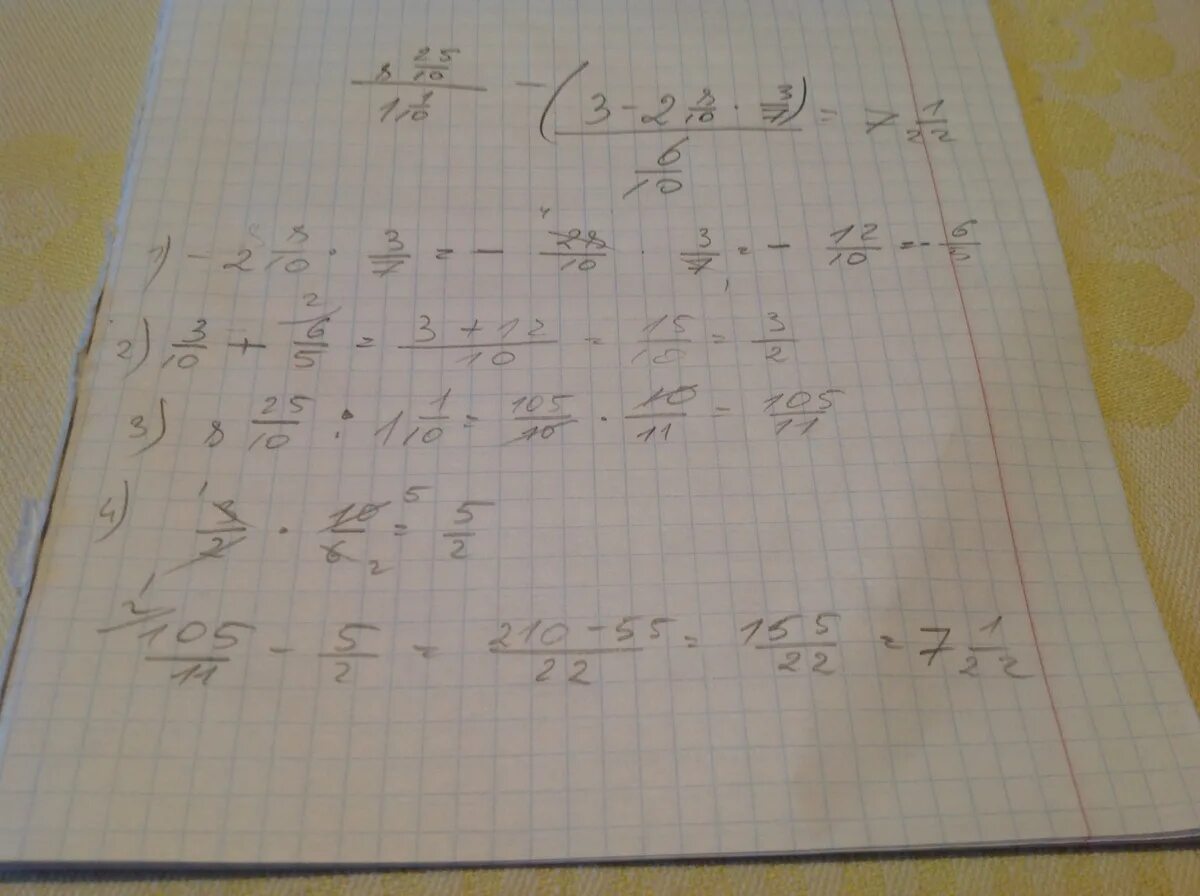 8 25/10 / 1 1/10 - (3 - 2 8/10 · 3/7) / 6/10 = 7 1/22
1) - 2 8/10 · 3/7 = - 28/10 · 3/7 = - 12/10 = - 6/5
2) 3/10 + 6/5 = 3 + 12/10 = 15/10 = 3/2
3) 8 25/10 : 1 1/10 = 105/10 · 10/11 = 105/11
4) 3/2 · 10/6 = 5/2
105/11 - 5/2 = 210 - 55/22 = 155/22 = 7 1/22